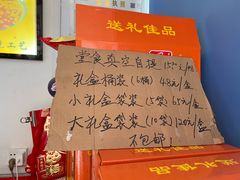 送礼佳品
堂食真空自提 15元/桶
礼盒桶装(6桶) 48元/盒
小礼盒袋装(5袋) 65元/盒
大礼盒袋装(10袋) 120元/盒
不包邮
送礼佳品